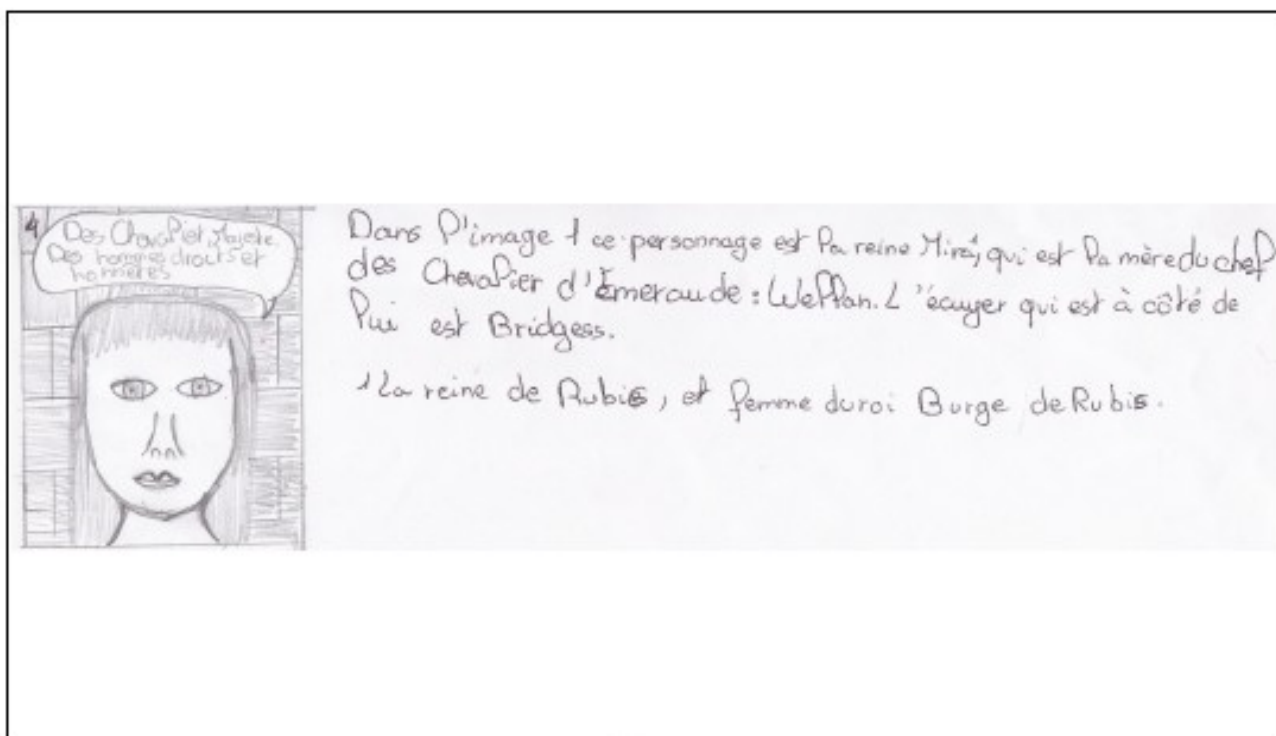 4
Des Chevalier, Majesté.
Des hommes droits et
honnêtes
Dans l'image 1 ce personnage est la reine Mira¹, qui est la mère du chef
des Chevalier d'Émeraude : Wellan. L'écuyer qui est à côté de
lui est Bridgess.
1 La reine de Rubis, et femme du roi Burge de Rubis.